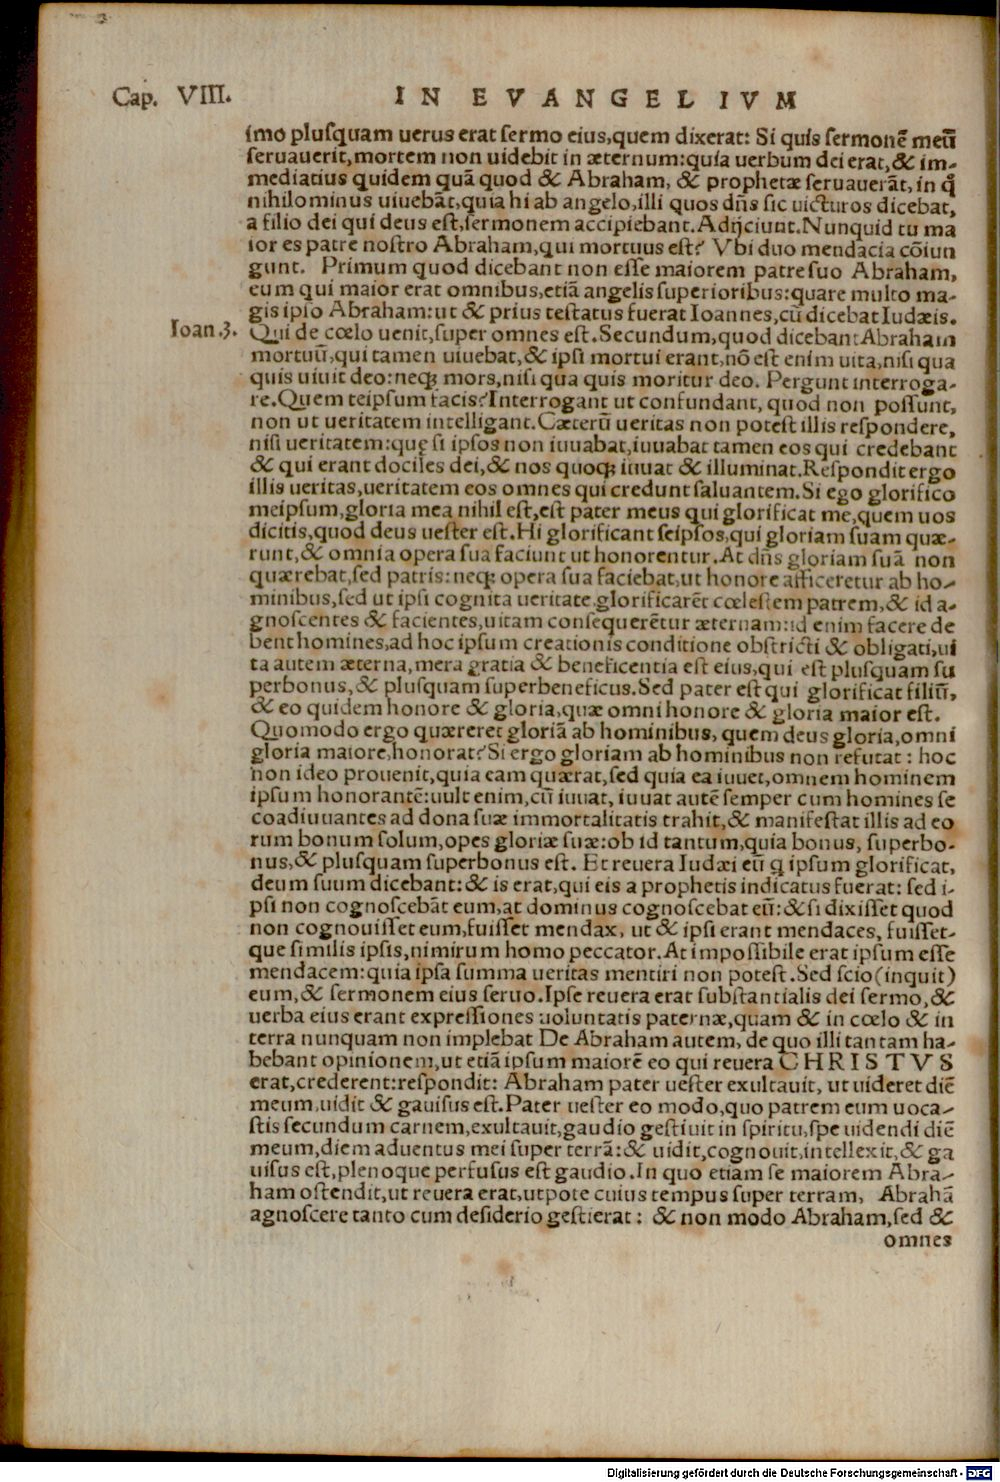 Cap. VIII. IN EVANGELIVM
imo plusquam uerus erat sermo eius,quem dixerat: Si quis sermonē meū
seruauerit,mortem non uidebit in æternum:quia uerbum dei erat,& im-
mediatius quidem quā quod & Abraham, & prophetæ seruauerāt, in q̄
nihilominus uiuebāt,quia hi ab angelo,illi quos dn̄s sic uicturos dicebat,
a filio dei qui deus est,sermonem accipiebant.Adijciunt.Nunquid tu ma
ior es patre nostro Abraham,qui mortuus est? Vbi duo mendacia cōiun
gunt. Primum quod dicebant non esse maiorem patre suo Abraham,
eum qui maior erat omnibus,etiā angelis superioribus:quare multo ma-
gis ipso Abraham:ut & prius testatus fuerat Ioannes,cū dicebat Iudæis.
Ioan.3. Qui de cœlo uenit,super omnes est.Secundum,quod dicebant Abraham
mortuū,qui tamen uiuebat,& ipsi mortui erant,nō est enim uita,nisi qua
quis uiuit deo:neq; mors,nisi qua quis moritur deo. Pergunt interroga-
re.Quem teipsum facis?Interrogant ut confundant, quod non possunt,
non ut ueritatem intelligant.Cæterū ueritas non potest illis respondere,
nisi ueritatem:quę si ipsos non iuuabat,iuuabat tamen eos qui credebant
& qui erant dociles dei,& nos quoq; iuuat & illuminat.Respondit ergo
illis ueritas,ueritatem eos omnes qui credunt saluantem.Si ego glorifico
meipsum,gloria mea nihil est,est pater meus qui glorificat me,quem uos
dicitis,quod deus uester est.Hi glorificant seipsos,qui gloriam suam quæ-
runt,& omnia opera sua faciunt ut honorentur.At dn̄s gloriam suā non
quærebat,sed patris:neq; opera sua faciebat,ut honore afficeretur ab ho-
minibus,sed ut ipsi cognita ueritate glorificarēt cœlestem patrem,& id a-
gnoscentes & facientes,uitam consequerētur æternam:id enim facere de
bent homines,ad hoc ipsum creationis conditione obstricti & obligati,ui
ta autem æterna,mera gratia & beneficentia est eius,qui est plusquam su
perbonus,& plusquam superbeneficus.Sed pater est qui glorificat filiū,
& eo quidem honore & gloria,quæ omni honore & gloria maior est.
Quomodo ergo quæreret gloriā ab hominibus, quem deus gloria,omni
gloria maiore,honorat?Si ergo gloriam ab hominibus non refutat: hoc
non ideo prouenit,quia eam quærat,sed quia ea iuuet,omnem hominem
ipsum honorantē:uult enim,cū iuuat, iuuat autē semper cum homines se
coadiuuantes ad dona suæ immortalitatis trahit,& manifestat illis ad eo
rum bonum solum,opes gloriæ suæ:ob id tantum,quia bonus, superbo-
nus,& plusquam superbonus est. Et reuera Iudæi eū q ipsum glorificat,
deum suum dicebant:& is erat,qui eis a prophetis indicatus fuerat: sed i-
psi non cognoscebāt eum,at dominus cognoscebat eū:& si dixisset quod
non cognouisset eum,fuisset mendax, ut & ipsi erant mendaces, fuisset-
que similis ipsis,nimirum homo peccator.At impossibile erat ipsum esse
mendacem:quia ipsa summa ueritas mentiri non potest.Sed scio(inquit)
eum,& sermonem eius seruo.Ipse reuera erat substantialis dei sermo,&
uerba eius erant expressiones uoluntatis paternæ,quam & in cœlo & in
terra nunquam non implebat De Abraham autem, de quo illi tantam ha-
bebant opinionem,ut etiā ipsum maiorē eo qui reuera CHRISTVS
erat,crederent:respondit: Abraham pater uester exultauit, ut uideret diē
meum,uidit & gauisus est.Pater uester eo modo,quo patrem eum uoca-
stis secundum carnem,exultauit,gaudio gestiuit in spiritu,spe uidendi diē
meum,diem aduentus mei super terrā:& uidit,cognouit,intellexit,& ga
uisus est,plenoque perfusus est gaudio.In quo etiam se maiorem Abra-
ham ostendit,ut reuera erat,utpote cuius tempus super terram, Abrahā
agnoscere tanto cum desiderio gestierat: & non modo Abraham,sed &
omnes
Digitalisierung gefördert durch die Deutsche Forschungsgemeinschaft - DFG